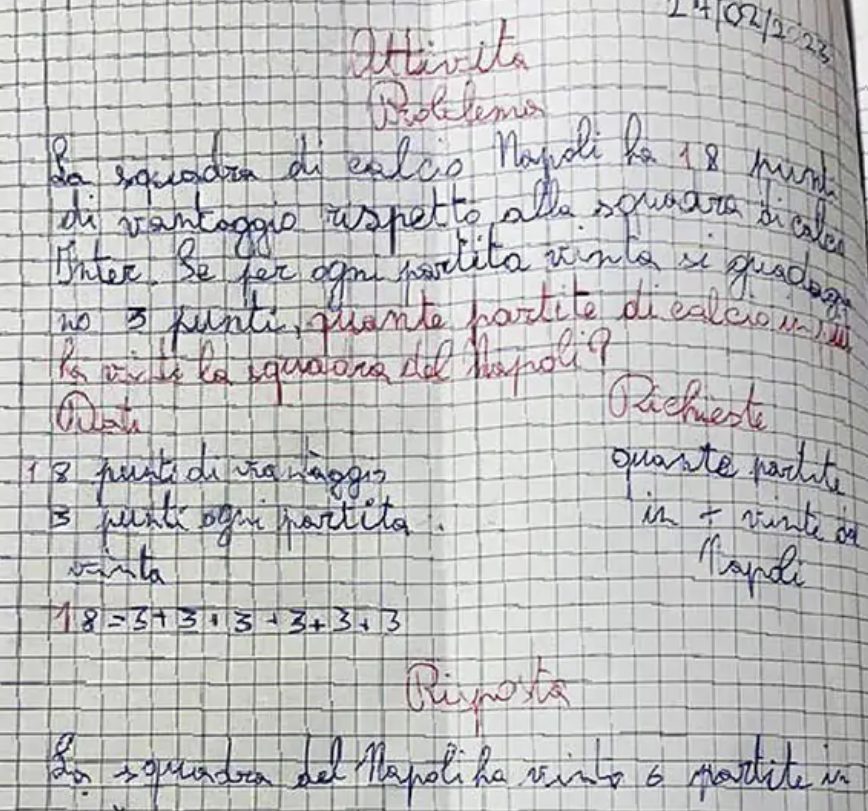 27/02/2023
Attività
Problema
La squadra di calcio Napoli ha 18 punti
di vantaggio rispetto alla squadra di calcio
Inter. Se per ogni partita vinta si guadagna
no 3 punti, quante partite di calcio in più
ha vinto la squadra del Napoli?
Dati
Richieste
18 punti di vantaggio
3 punti ogni partita
vinta
quante partite
in + vinte
Napoli
18=3+3+3+3+3+3
Risposta
La squadra del Napoli ha vinto 6 partite in